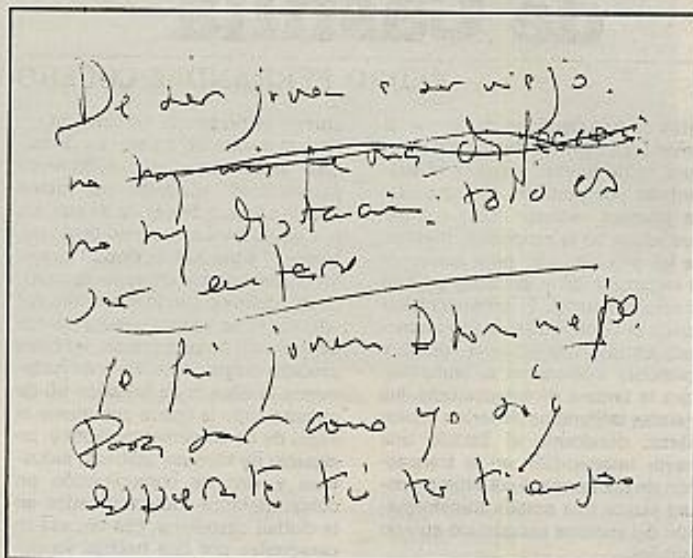 De ser joven a ser viejo.
no hay más
no hay distancia: todo es
ser entero
Yo fui joven Ahora viejo.
Para ser como yo soy
espérate tú tu tiempo